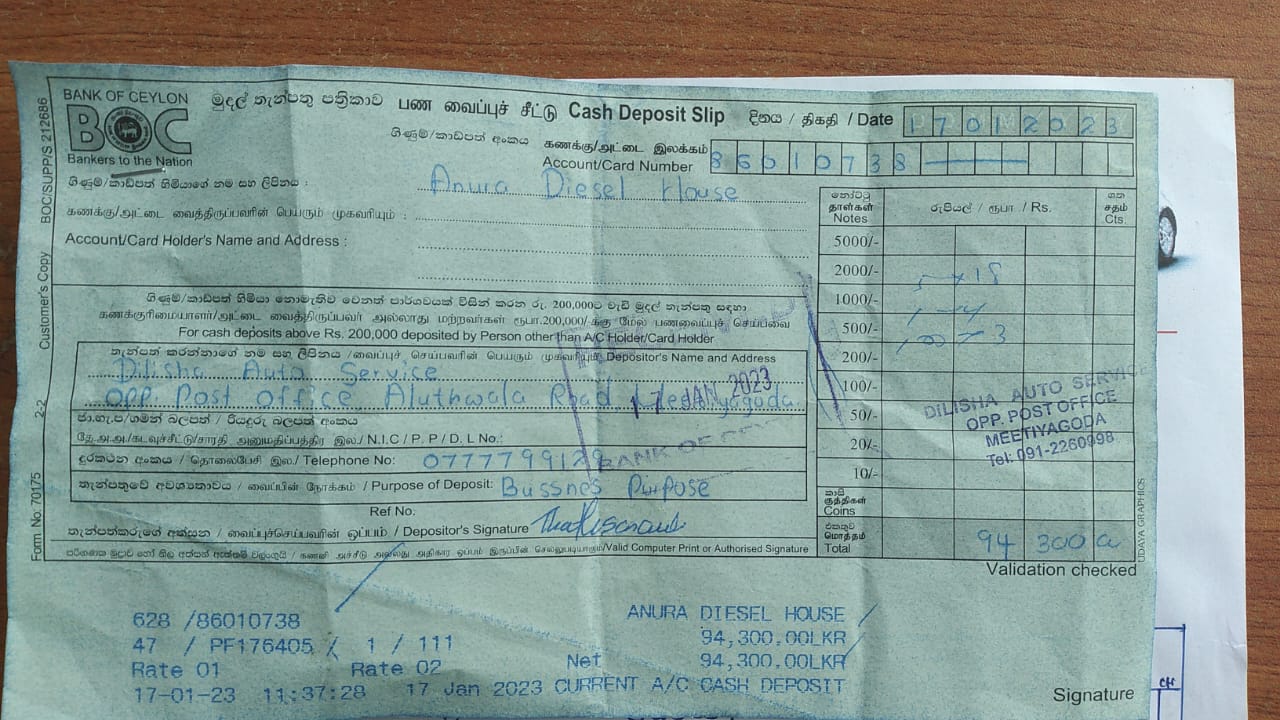 BANK OF CEYLON
BOC
Bankers to the Nation
මුදල් තැන්පතු පත්‍රිකාව பண வைப்புச் சீட்டு Cash Deposit Slip
දිනය / திகதி / Date 17012023
ගිණුම්/කාඩ්පත් අංකය கணக்கு/அட்டை இலக்கம்
Account/Card Number 86010738
ගිණුම්/කාඩ්පත් හිමියාගේ නම සහ ලිපිනය :
Anura Diesel House
கணக்கு/அட்டை வைத்திருப்பவரின் பெயரும் முகவரியும் :
Account/Card Holder's Name and Address :
ගිණුම්/කාඩ්පත් හිමියා නොමැතිව වෙනත් පාර්ශවයක් විසින් කරන රු. 200,000ට වැඩි මුදල් තැන්පතු සඳහා
கணக்குரிமையாளர்/அட்டை வைத்திருப்பவர் அல்லாது மற்றவர்கள் ரூபா.200,000/-க்கு மேல் பணவைப்புச் செய்பவை
For cash deposits above Rs. 200,000 deposited by Person other than A/C Holder/Card Holder
තැන්පත් කරන්නාගේ නම සහ ලිපිනය / வைப்புச் செய்பவரின் பெயரும் முகவரியும் / Depositor's Name and Address
Dilisha Auto Service
OPP. Post Office Aluthwala Road, Meetiyagoda.
ජා.හැ.ප/ගමන් බලපත් / රියදුරු බලපත් අංකය
தே.அ.அ/கடவுச்சீட்டு/சாரதி அனுமதிப்பத்திர இல/ N.I.C / P.P / D.L No.:
දුරකථන අංකය / தொலைபேசி இல./ Telephone No: 0777799129
තැන්පතුවේ අවශ්‍යතාවය / வைப்பின் நோக்கம் / Purpose of Deposit: Bussnes Purpose
Ref No.
තැන්පත්කරුගේ අත්සන / வைப்புச்செய்பவரின் ஒப்பம் / Depositor's Signature
/Valid Computer Print or Authorised Signature
නෝට්ටු
தாள்கள்
Notes
රුපියල් / ரூபா / Rs.
ශත
சதம்
Cts.
5000/-
2000/-
5 x 18
1000/-
1 - 4
500/-
100 - 3
200/-
100/-
50/-
20/-
10/-
කාසි
குத்திகள்
Coins
එකතුව
மொத்தம்
Total
94 300
Validation checked
17 JAN 2023
BANK OF CEYLON
DILISHA AUTO SERVICE
OPP. POST OFFICE
MEETIYAGODA
Tel: 091-2260998
Form No: 70175
2-2
Customer's Copy
BOC/SUPP/S 212686
UDAYA GRAPHICS
628 /86010738
ANURA DIESEL HOUSE
47 / PF176405 / 1 / 111
94,300.00LKR
Rate 01 Rate 02 Net 94,300.00LKR
17-01-23 11:37:28 17 Jan 2023 CURRENT A/C CASH DEPOSIT
Signature